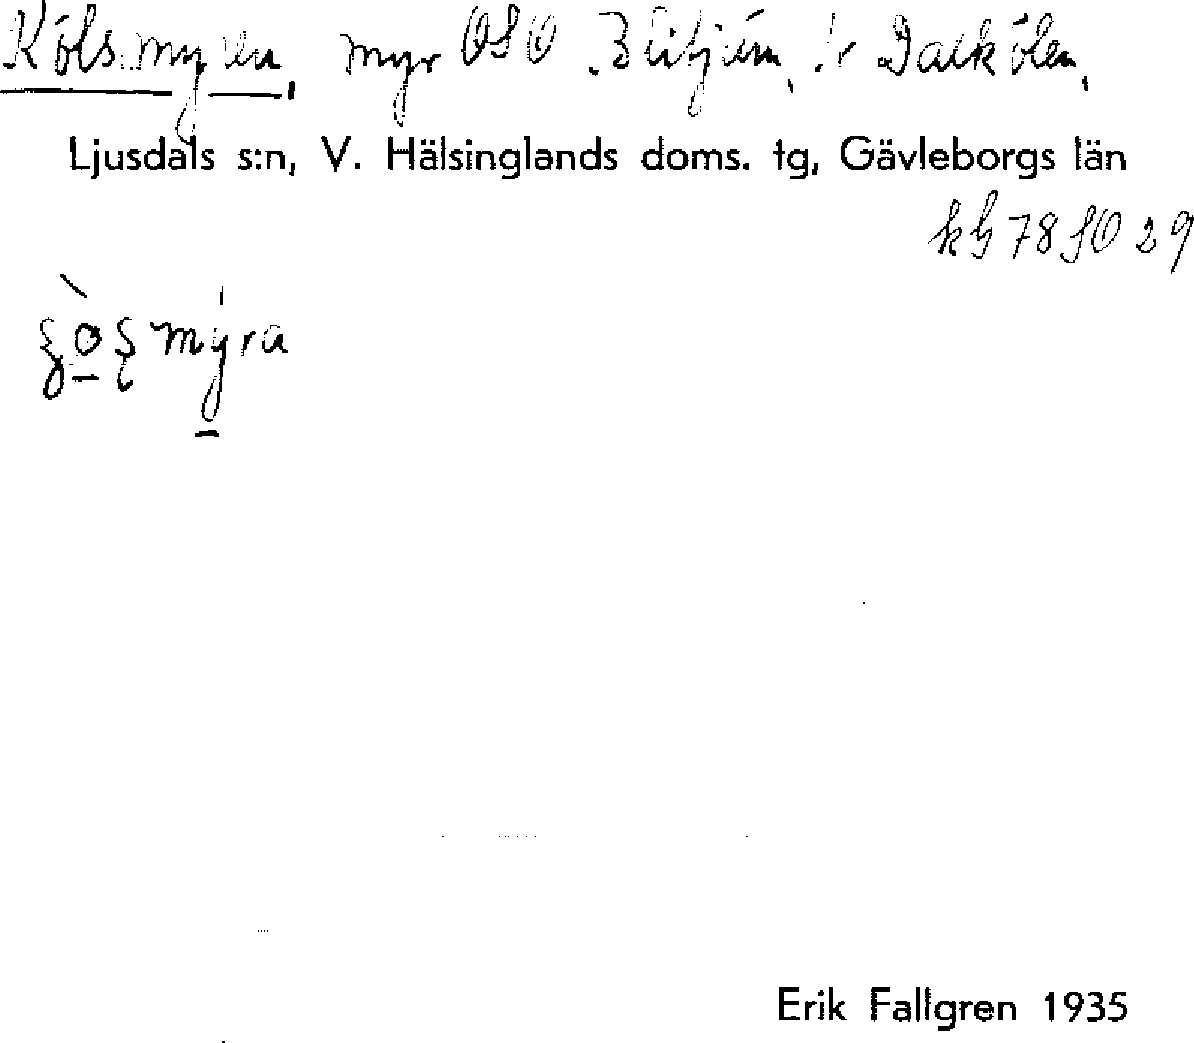 Kölsmyren, myr OSO Blitjärn, Dalkölen,
Ljusdals s:n, V. Hälsinglands doms. tg, Gävleborgs län
kg 78 SO 29
myra
Erik Fallgren 1935